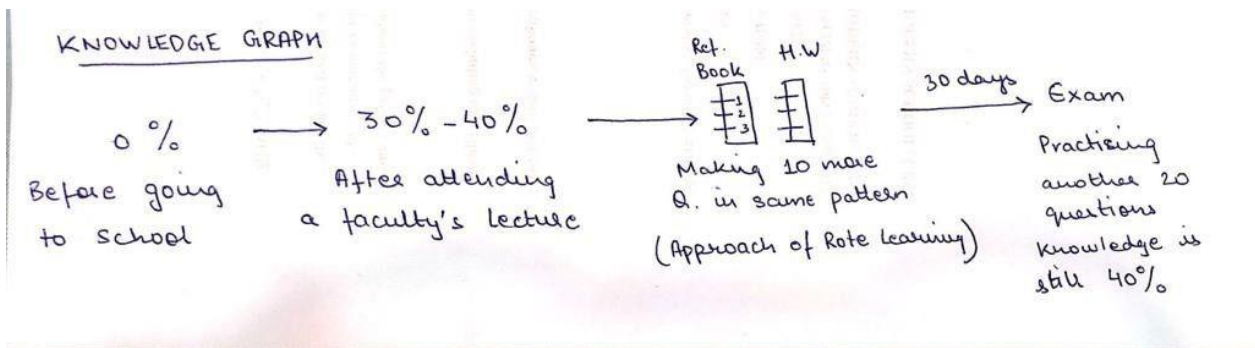 KNOWLEDGE GRAPH
0 %
Before going
to school
30% - 40%
After attending
a faculty's lecture
Ref.
Book
1
2
3
H.W
Making 10 more
Q. in same pattern
(Approach of Rote learning)
30 days
Exam
Practising
another 20
questions
knowledge is
still 40%